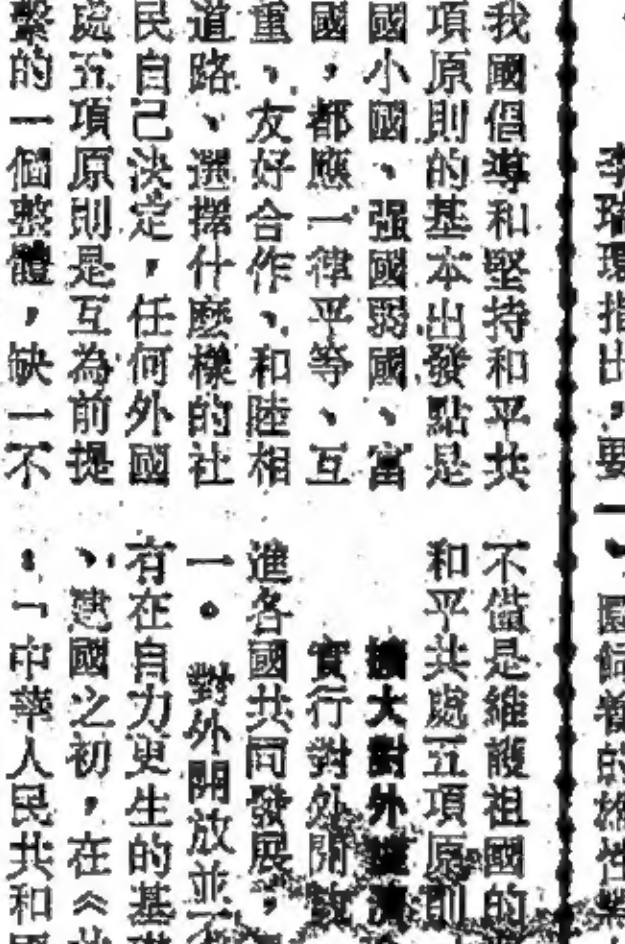 李瑞環指出，要
我國倡導和堅持和平共
項原則的基本出發點是
國小國、强國弱國、富
國，都應一律平等、互
重、友好合作、和陸相
道路、選擇什麽樣的社
民自己決定，任何外國
處五項原則是互為前提
繫的一個整體，缺一不
一、
不僅是維護祖國的
和平共處五項原則
擴大對外經濟
實行對外開放
進各國共同發展，
一。對外開放並不
有在自力更生的基
、建國之初，在《共
：「中華人民共和國